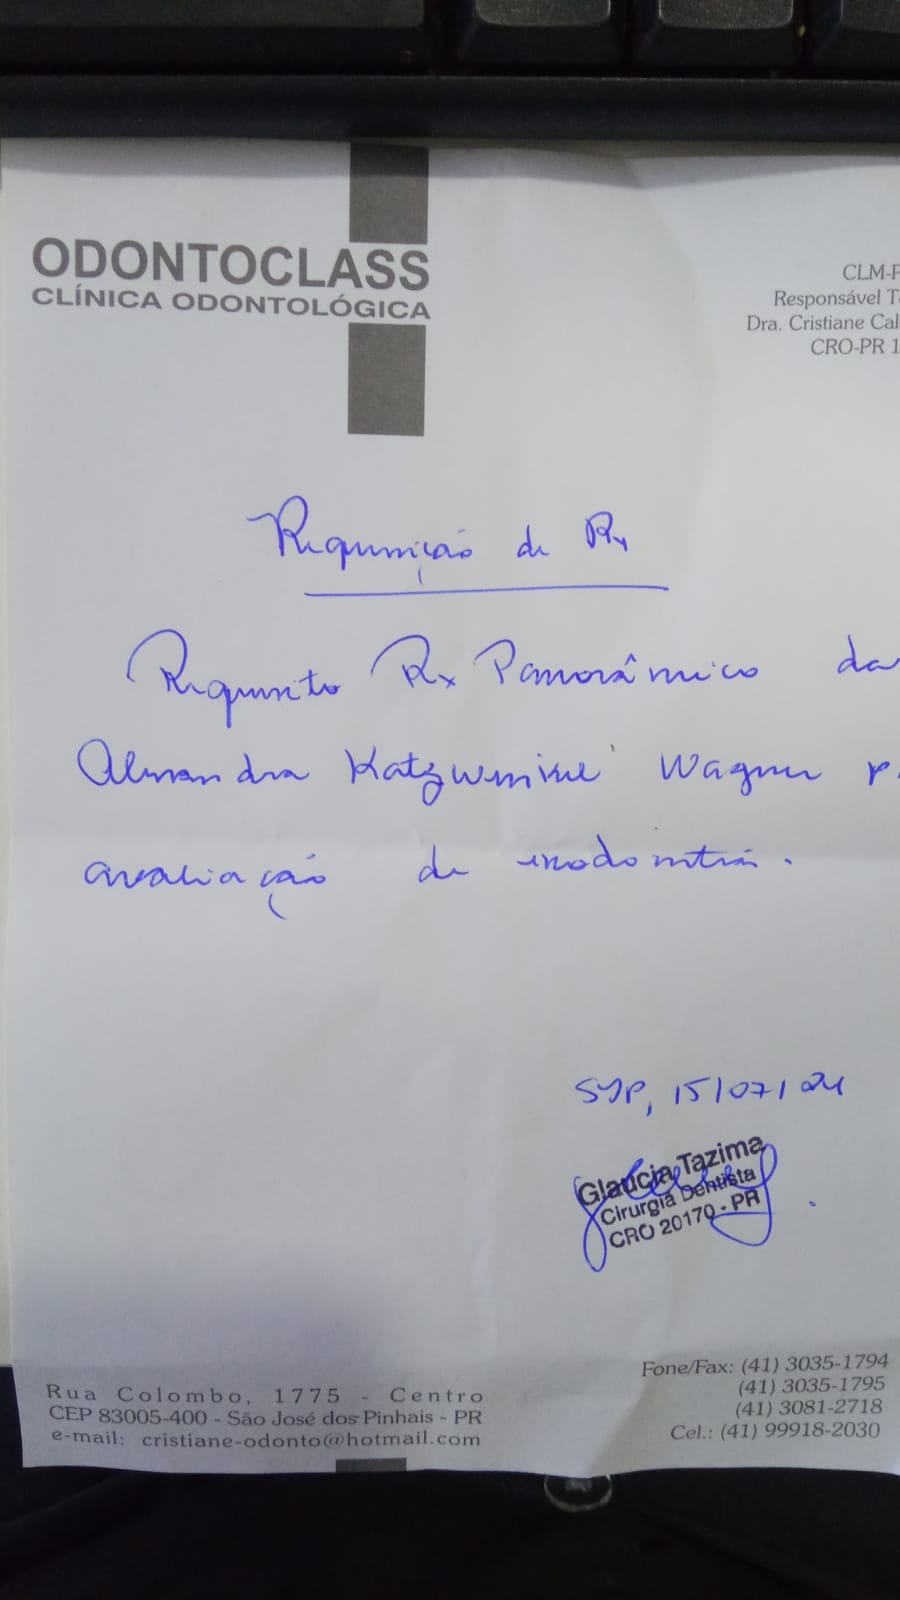 ODONTOCLASS
CLÍNICA ODONTOLÓGICA
CLM-P
Responsável T
Dra. Cristiane Cal
CRO-PR 1
Requisição de Rx
Requisito Rx Panorâmico da
Wagner p.
avaliação de exodontia.
SJP, 15/07/24
Glaucia Tazima
Cirurgiã Dentista
CRO 20170 - PR
Rua Colombo, 1775 - Centro
CEP 83005-400 - São José dos Pinhais - PR
e-mail: cristiane-odonto@hotmail.com
Fone/Fax: (41) 3035-1794
(41) 3035-1795
(41) 3081-2718
Cel.: (41) 99918-2030